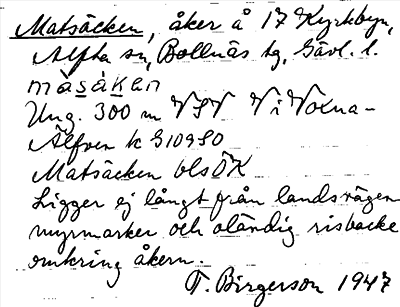 Matsäcken, åker å 17 Kyrkbyn,
Alfta sn, Bollnäs tg, Gävl. l.
màsàkan
Ung. 300 m VSV V i Voxna-
Älfven k G10980
Matsäcken bls ÖK
Ligger ej långt från landsvägen
myrmarker och oländig risbacke
omkring åkern.
T. Birgerson 1947